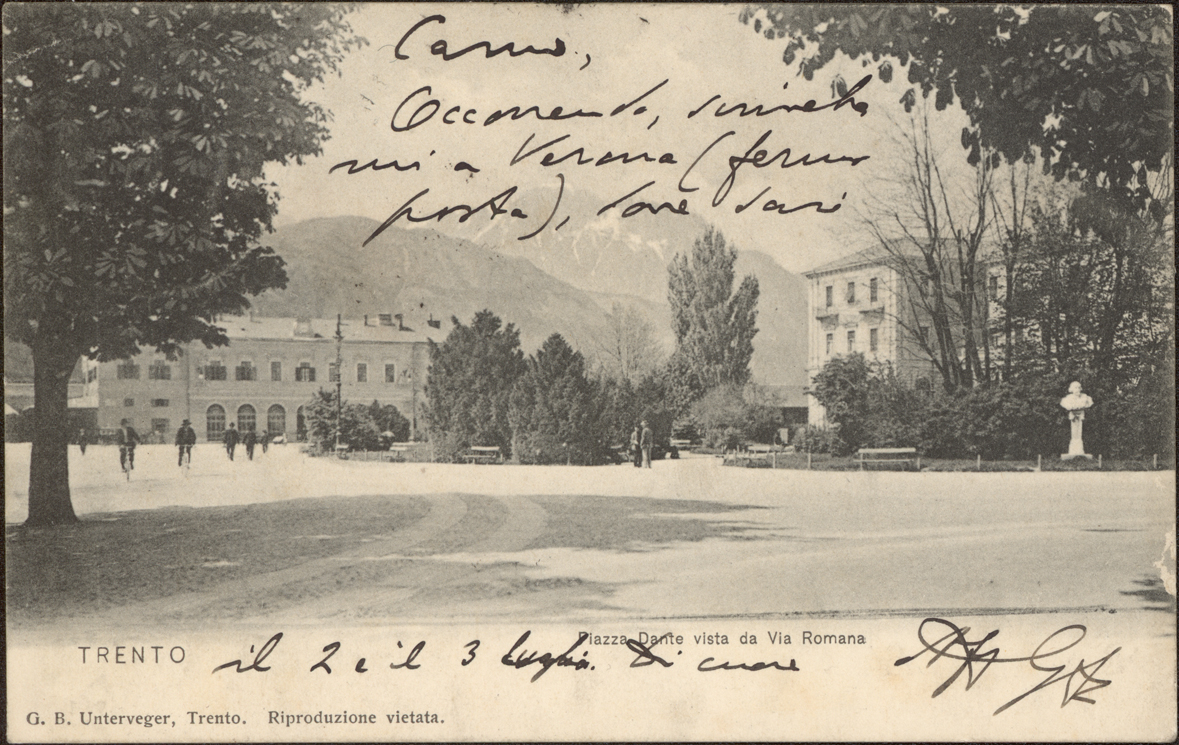 Carmo,
Occorrendo, scrivete
mi a Verona (fermo
posta), dove sarò
Piazza Dante vista da Via Romana
TRENTO
il 2 e il 3 luglio. Di cuore
G. B. Unterveger, Trento. Riproduzione vietata.